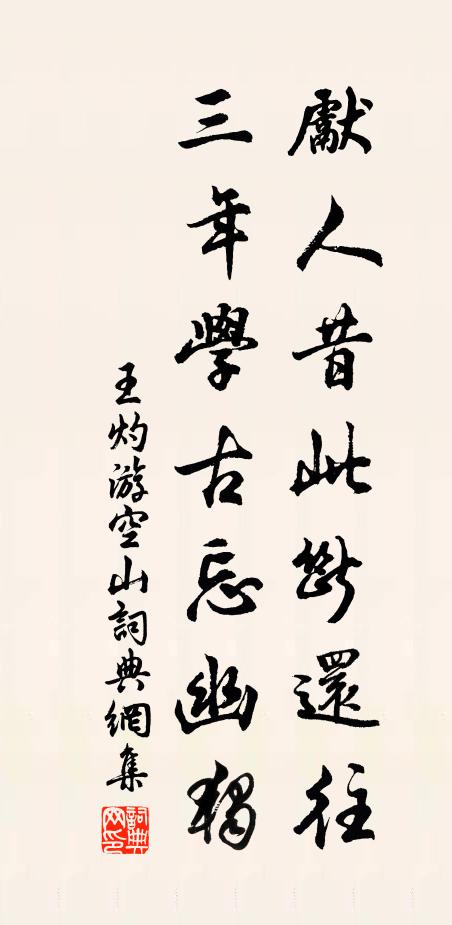 獻人昔此斷還往
三年學古忘幽獨
王灼游空山詞典網集
詞典
网印